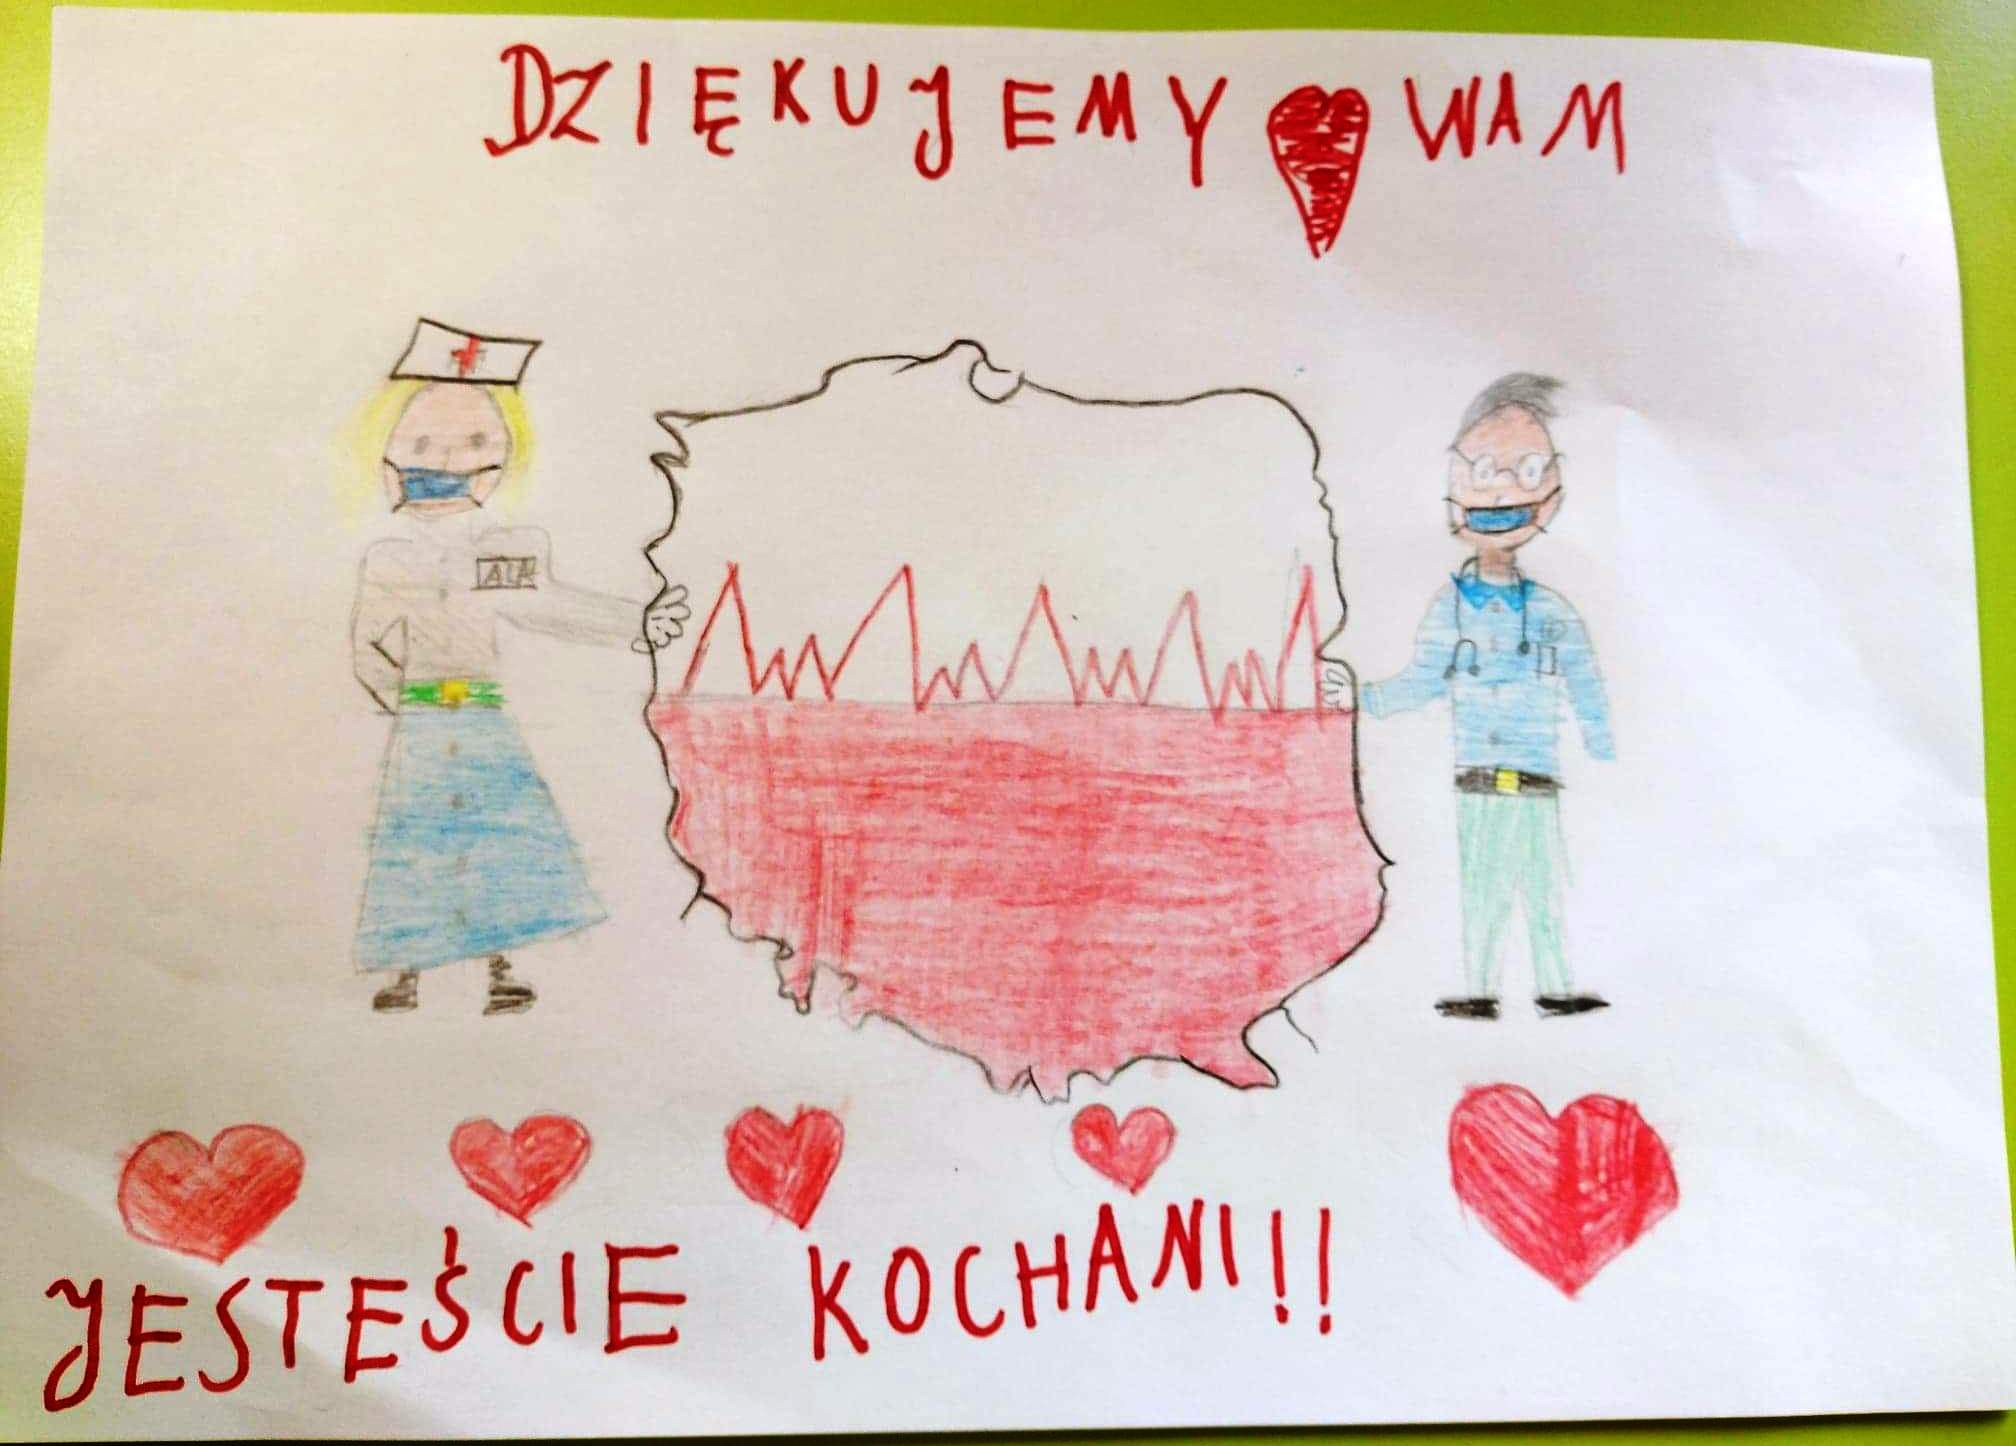 DZIĘKUJEMY WAM
ALA
JESTEŚCIE KOCHANI!!